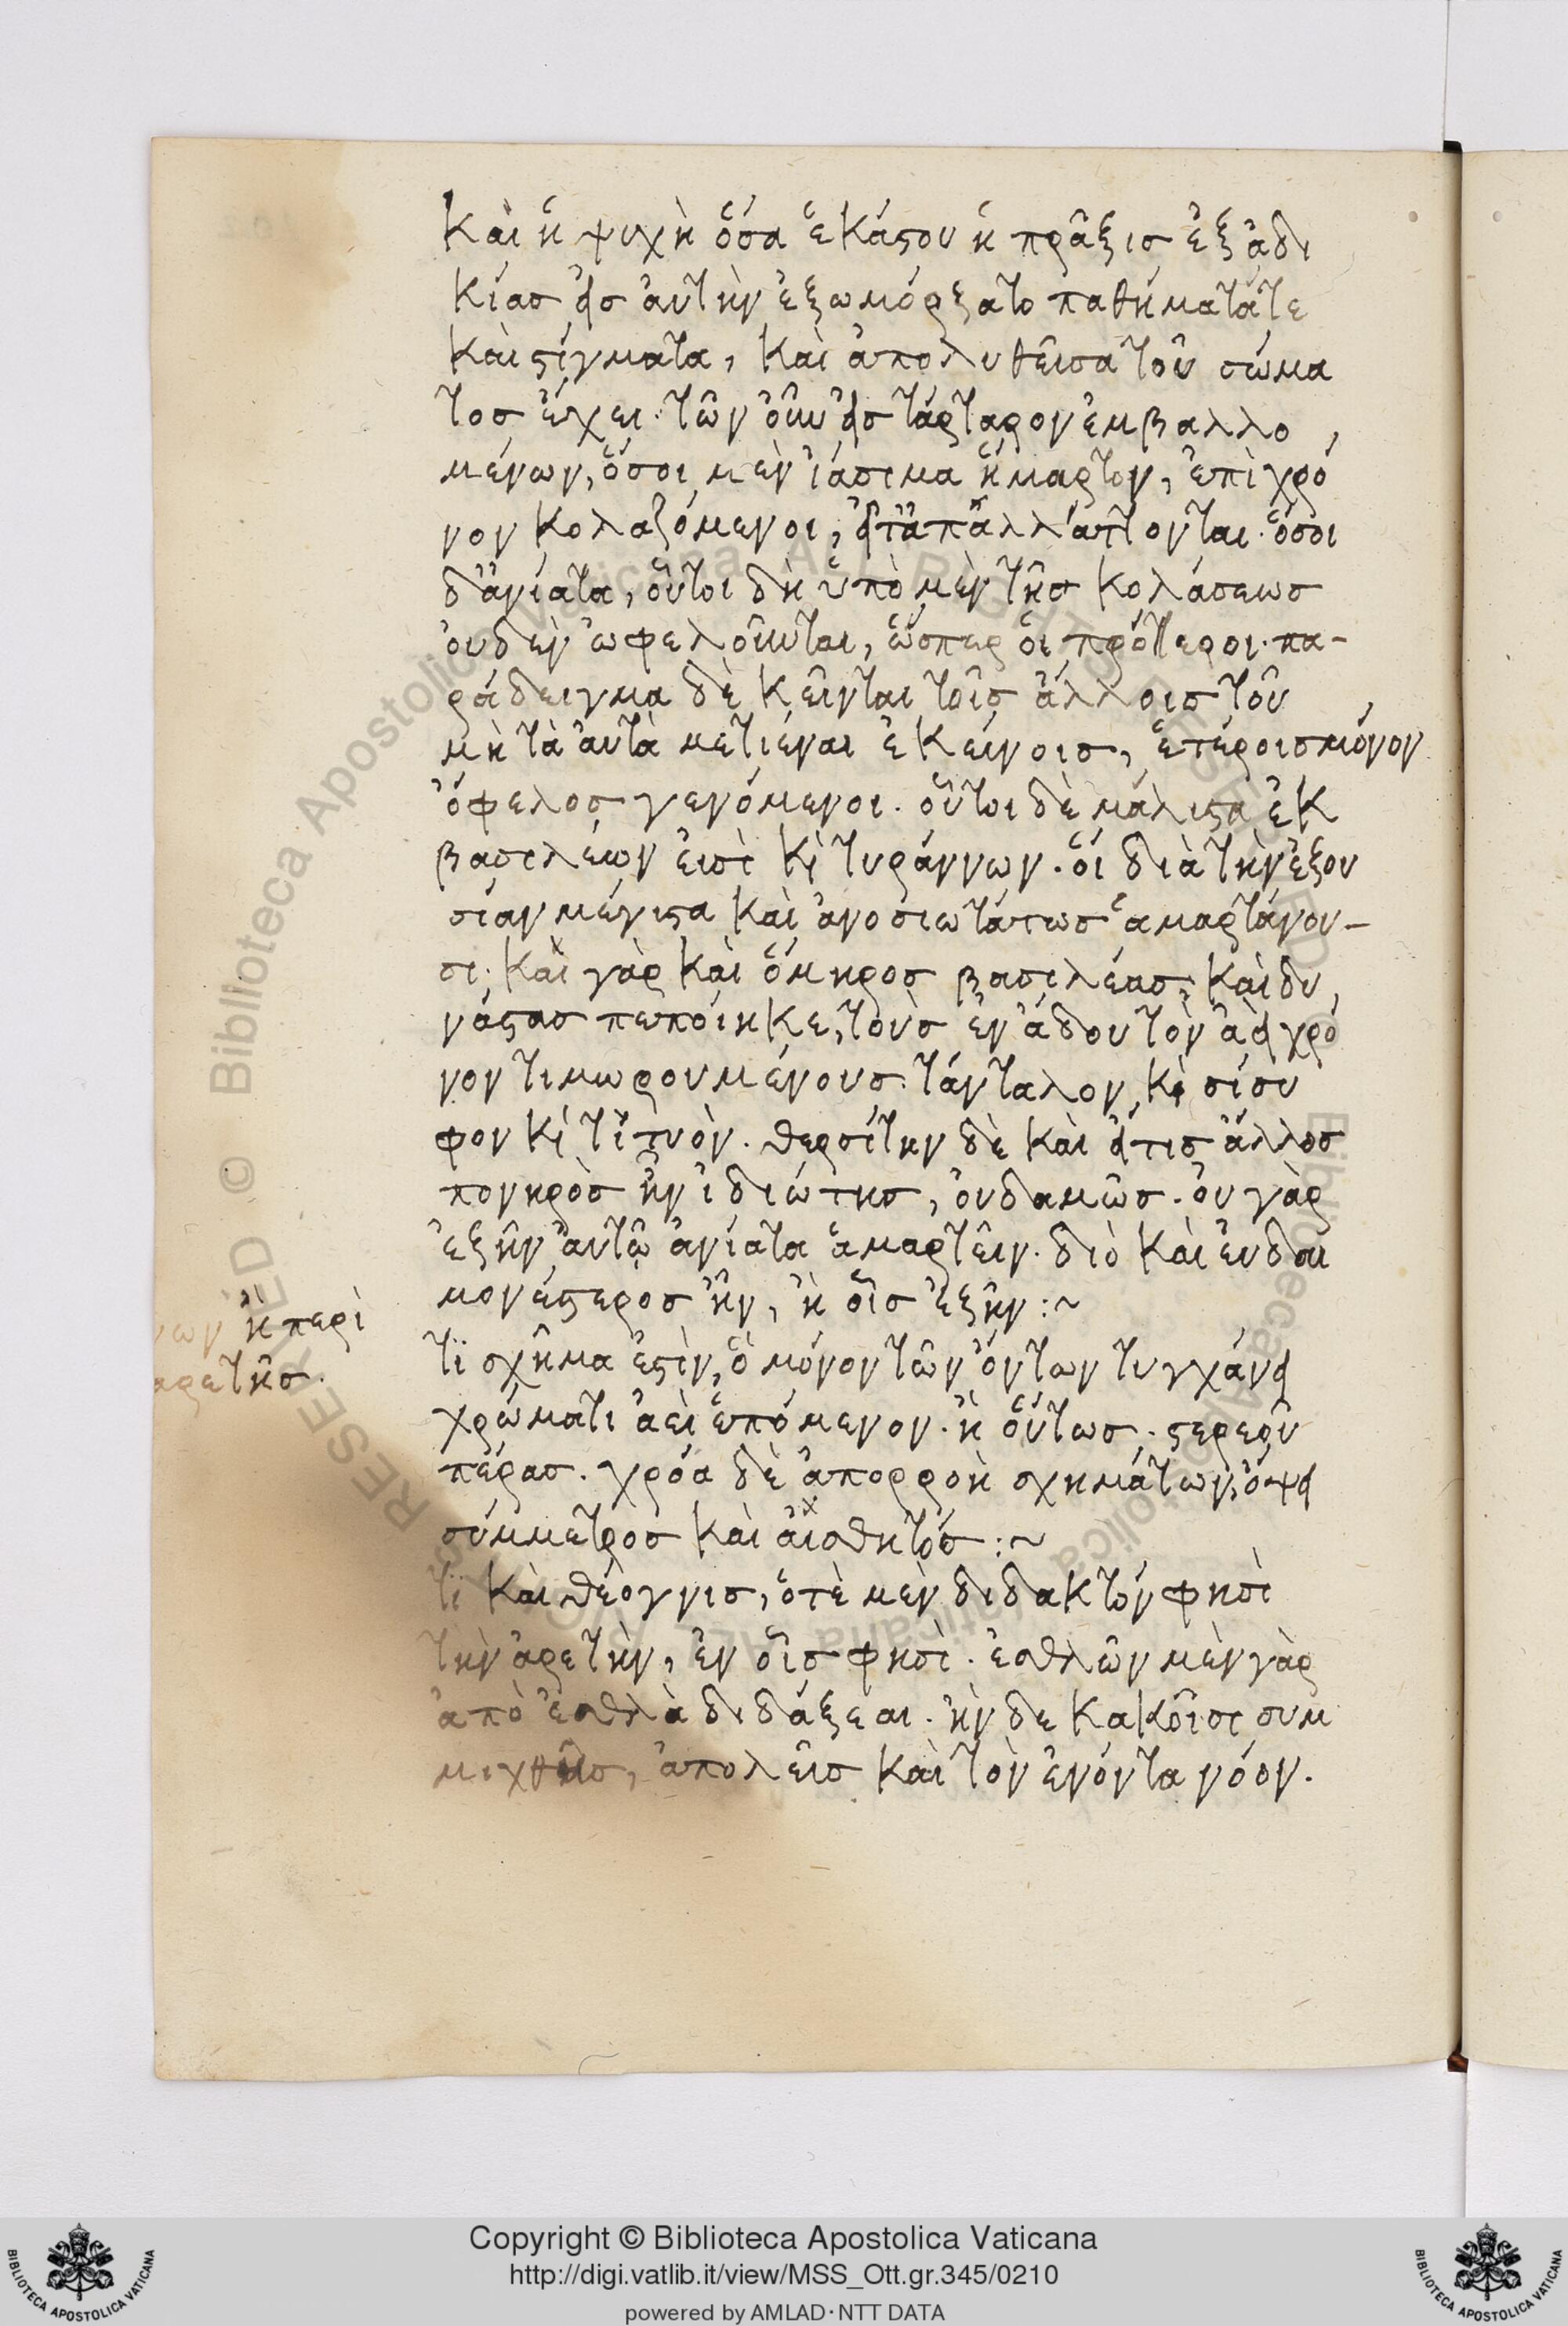 Καὶ ἡ ψυχὴ ὅσα ἑκάστου ἡ πρᾶξις ἐξ ἀδι
κίας εἰς αὐτὴν ἐξωμόρξατο παθήματά τε
καὶ στίγματα, καὶ ἀπολυθεῖσα τοῦ σώμα
τος ἔχει. τῶν οὖν εἰς τάρταρον ἐμβαλλο
μένων, ὅσοι μὲν ἰάσιμα ἥμαρτον, ἐπὶ χρό
νον κολαζόμενοι, εἶτα ἀπαλλάττονται. ὅσοι
δ' ἀνίατα, οὗτοι δὴ ὑπὸ μὲν τῆς κολάσεως
οὐδὲν ὠφελοῦνται, ὥσπερ οἱ πρότεροι. πα-
ράδειγμα δὲ κεῖνται τοῖς ἄλλοις τοῦ
μὴ τὰ αὐτὰ μετιέναι ἐκείνοις, ἑτέροις μόνον
ὄφελος γενόμενοι. οὗτοι δὲ μάλιστα ἐκ
βασιλέων εἰσὶ καὶ τυράννων. οἵ διὰ τὴν ἐξου
σίαν μέγιστα καὶ ἀνοσιωτάτως ἁμαρτάνου-
σι. καὶ γὰρ καὶ ὅμηρος βασιλέας καὶ δυ
νάστας πεποίηκε, τοὺς ἐν ἅδου τὸν ἀεὶ χρό
νον τιμωρουμένους. τάνταλον καὶ σίσυ
φον καὶ τίτυόν. θερσίτην δὲ καὶ εἴ τις ἄλλος
πονηρὸς ἦν ἰδιώτης, οὐδαμῶς. οὐ γὰρ
ἐξῆν αὐτῷ ἀνίατα ἁμαρτεῖν. διὸ καὶ εὐδαι
μονέστερος ἦν, ἢ οἷς ἐξῆν :~
ἢ περὶ
ἀρετῆς.
τί σχῆμα ἐστὶν, ὃ μόνον τῶν ὄντων τυγχάνει
χρώματι ἀεὶ ἑπόμενον. ἢ οὕτως. στερεοῦ
πέρας. χρόα δὲ ἀπορροὴ σχημάτων, ὄψει
σύμμετρος καὶ αἰσθητός :~
τί καὶ θέογνις, ὁτὲ μὲν διδακτόν φησὶ
τὴν ἀρετὴν, ἐν οἷς φησὶ. ἐσθλῶν μὲν γὰρ
ἀπὸ ἐσθλὰ διδάξεαι. ἢν δε κακοῖσι συμ
μιχθῇς, ἀπολεῖς καὶ τὸν ἐνόντα νόον.
Copyright © Biblioteca Apostolica Vaticana
http://digi.vatlib.it/view/MSS_Ott.gr.345/0210
powered by AMLAD·NTT DATA